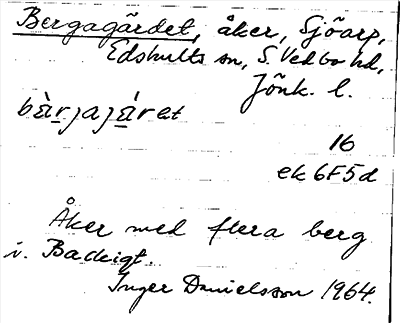 Bergagärdet, åker, Sjöarp,
Edshults sn, S. Vedbo hd,
Jönk. l.
16
ek 6F5d
Åker med flera berg
i. Backigt.
Inger Danielsson 1964.